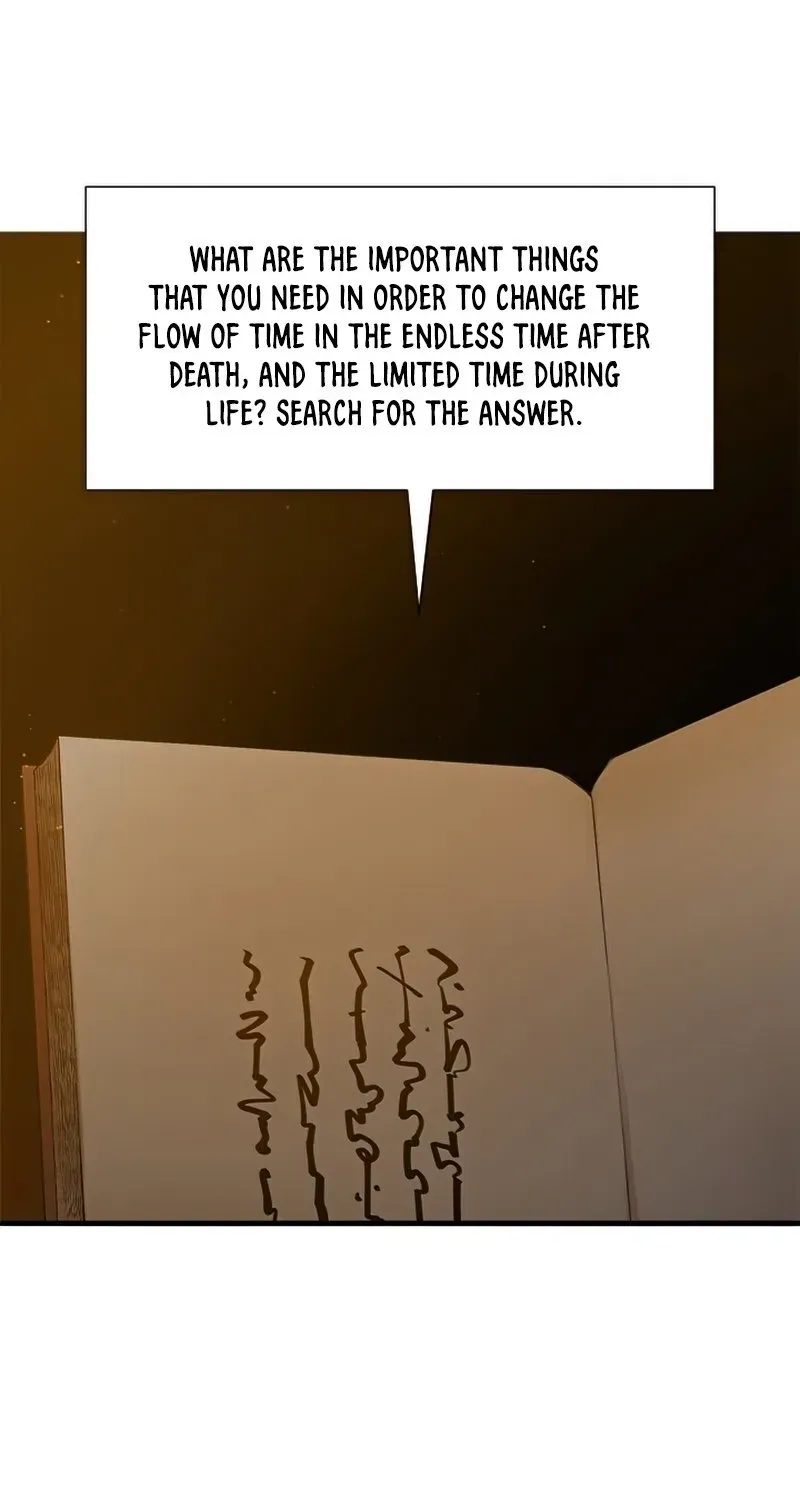 WHAT ARE THE IMPORTANT THINGS
THAT YOU NEED IN ORDER TO CHANGE THE
FLOW OF TIME IN THE ENDLESS TIME AFTER
DEATH, AND THE LIMITED TIME DURING
LIFE? SEARCH FOR THE ANSWER.